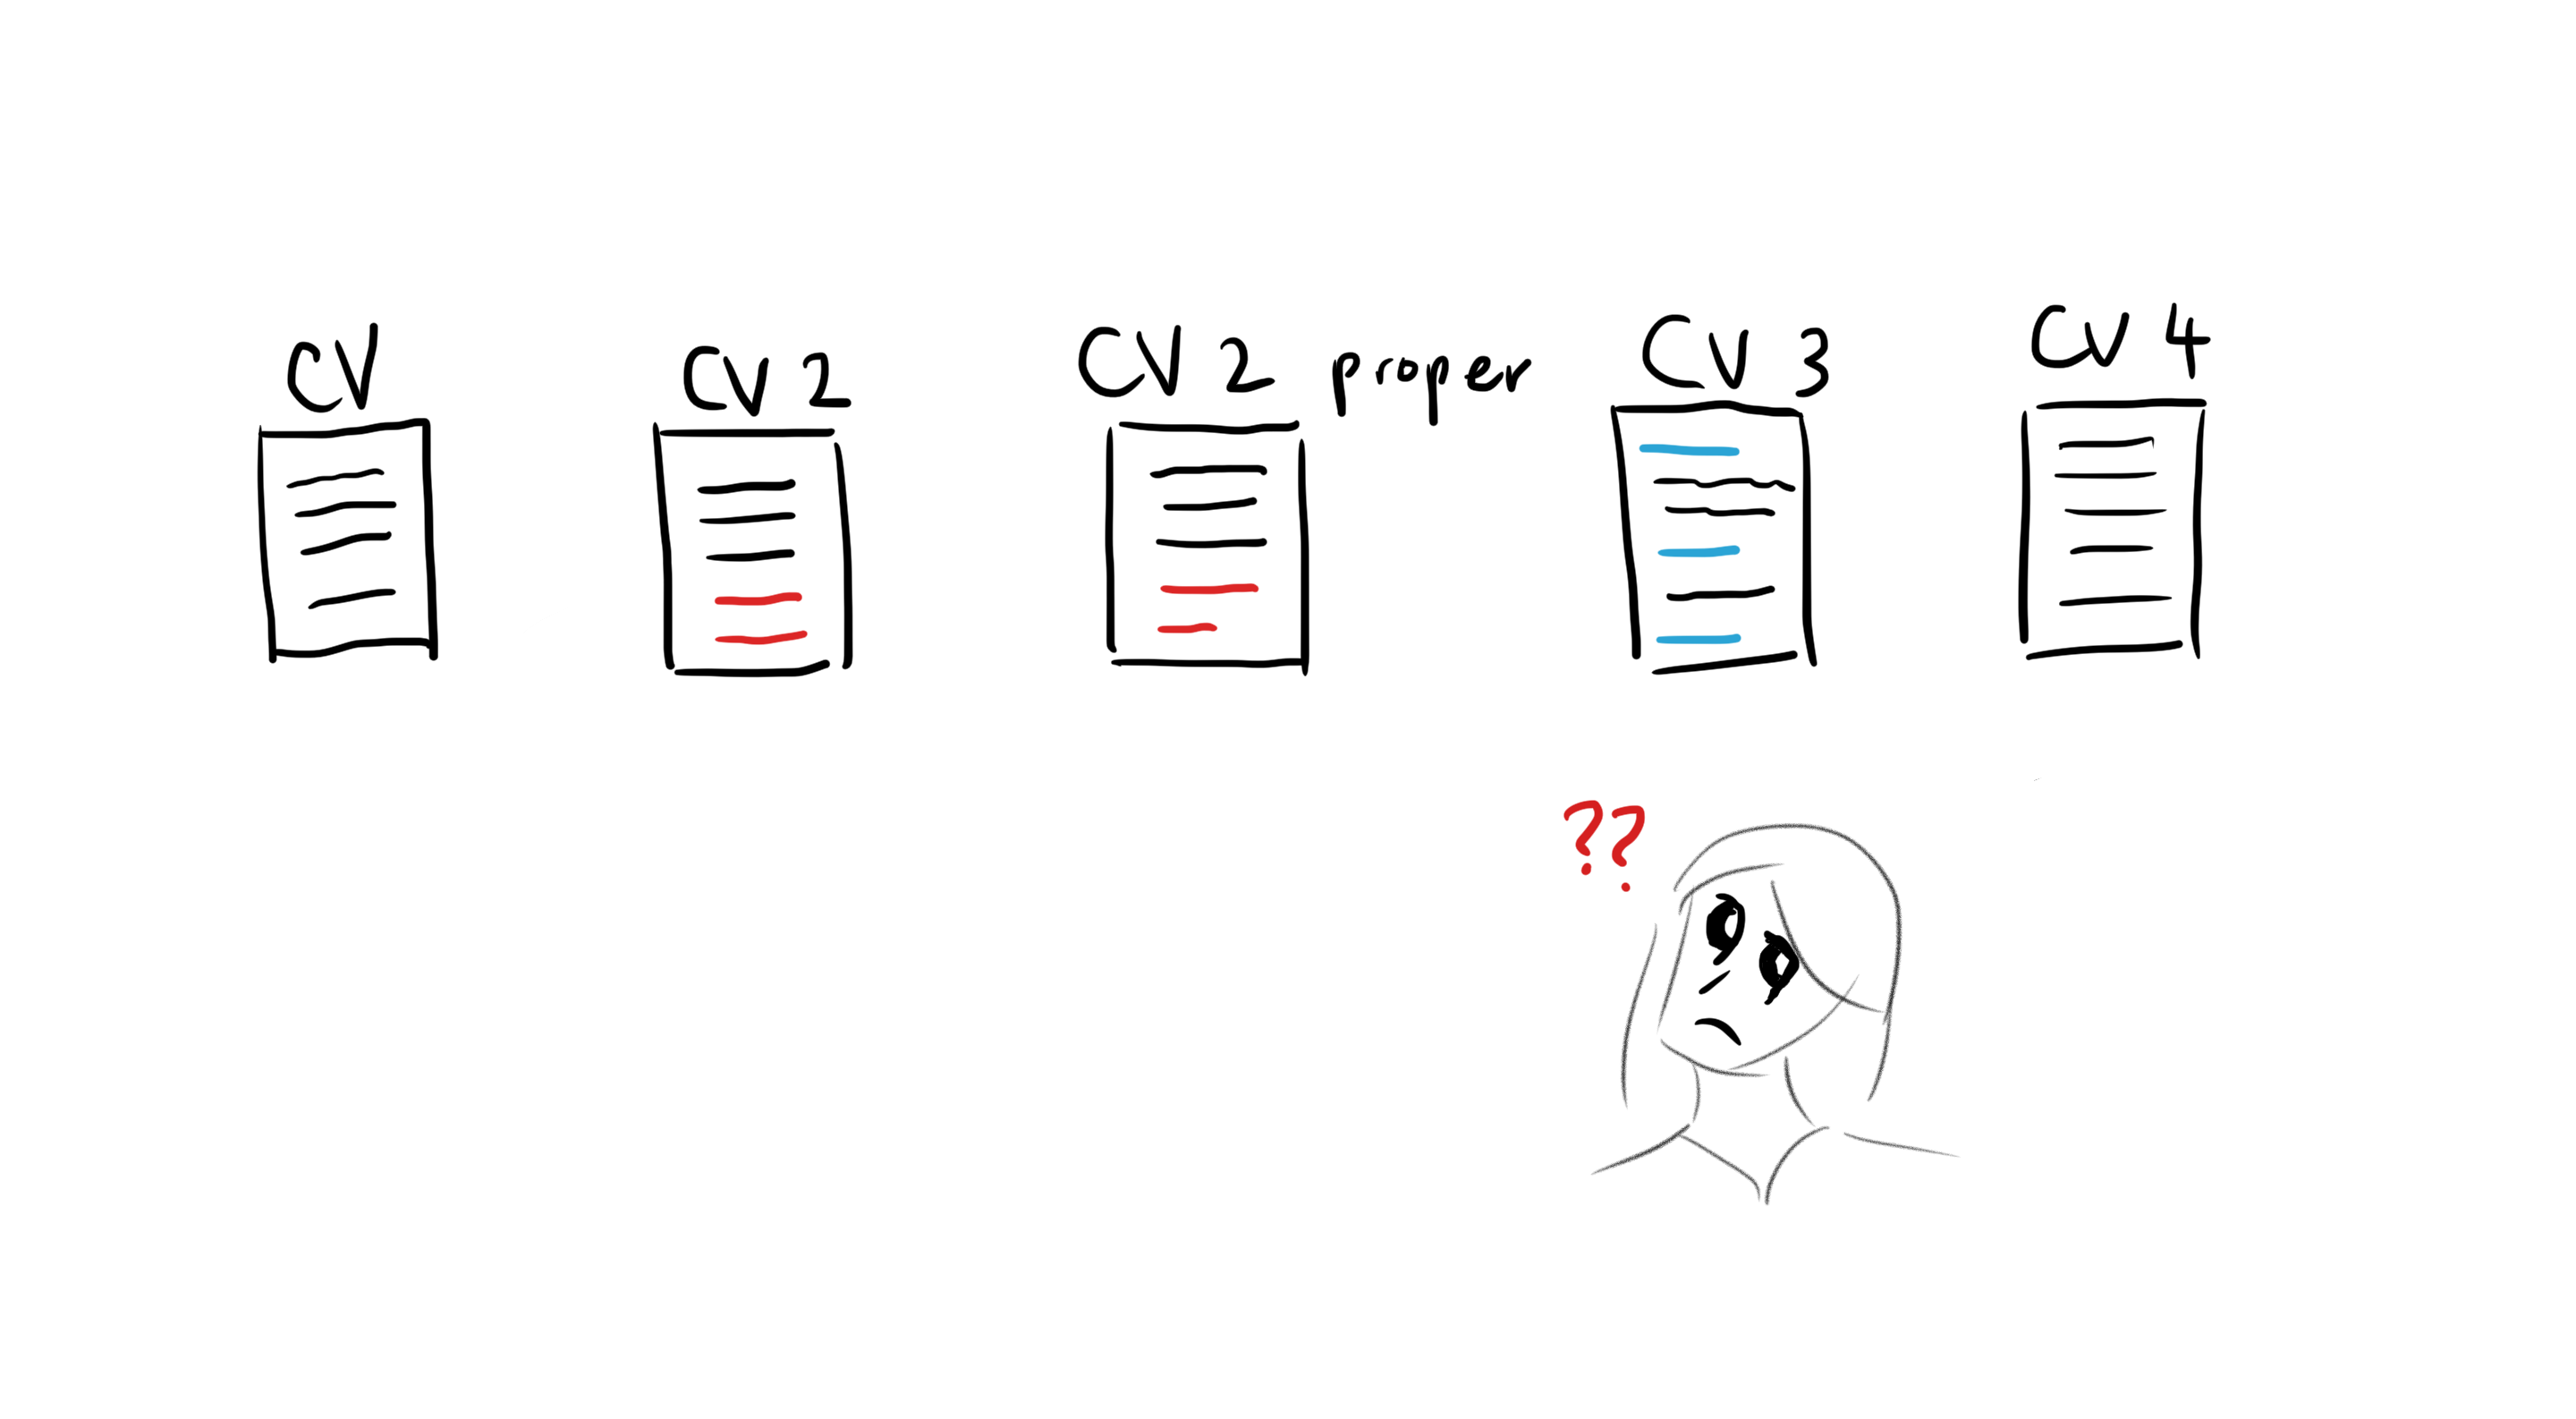 CV
CV 2
CV 2 proper
CV 3
CV 4
??